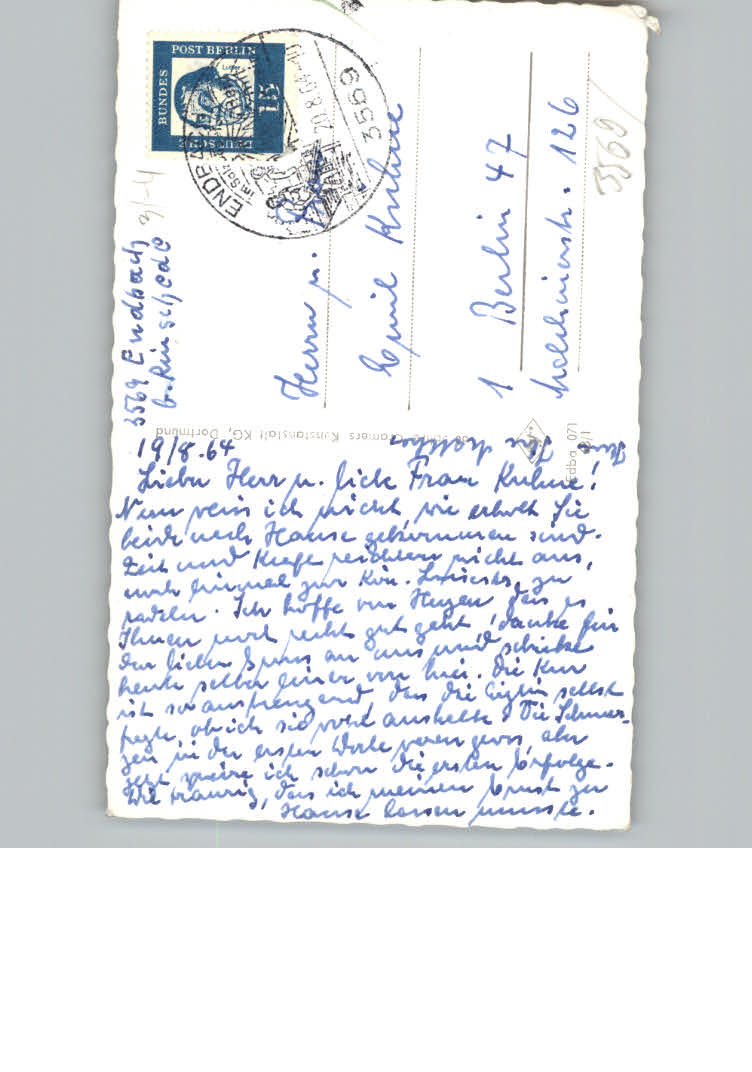 DEUTSCHE
BUNDES
POST BERLIN
15
Luther
ENDBACH
20.8.64-10
3569
3569
3569 Endbach
Herrn u. Frau
Emil Kuhne
1 Berlin 47
126
Cramers Kunstanstalt KG, Dortmund
Edba. 071
19/8.64
Lieber Herr u. liebe Frau Kuhne!
Nun weiss ich nicht, wie erholt Sie
beide nach Hause gekommen sind.
Zeit und Kraft reichten nicht aus,
noch einmal zur Kön. zu
radeln. Ich hoffe von Herzen dass es
Ihnen noch recht gut geht, danke für
den lieben Gruss an uns und schicke
heute selber einen von hier. Die Kur
ist so anstrengend, das die selbst
fragte, ob ich sie wohl aushalte. Die Schmer-
zen in der ersten Woche waren gross, aber
jetzt spüre ich schon die ersten Erfolge.
Wie traurig, das ich meinen Ernst zu
Hause lassen musste.